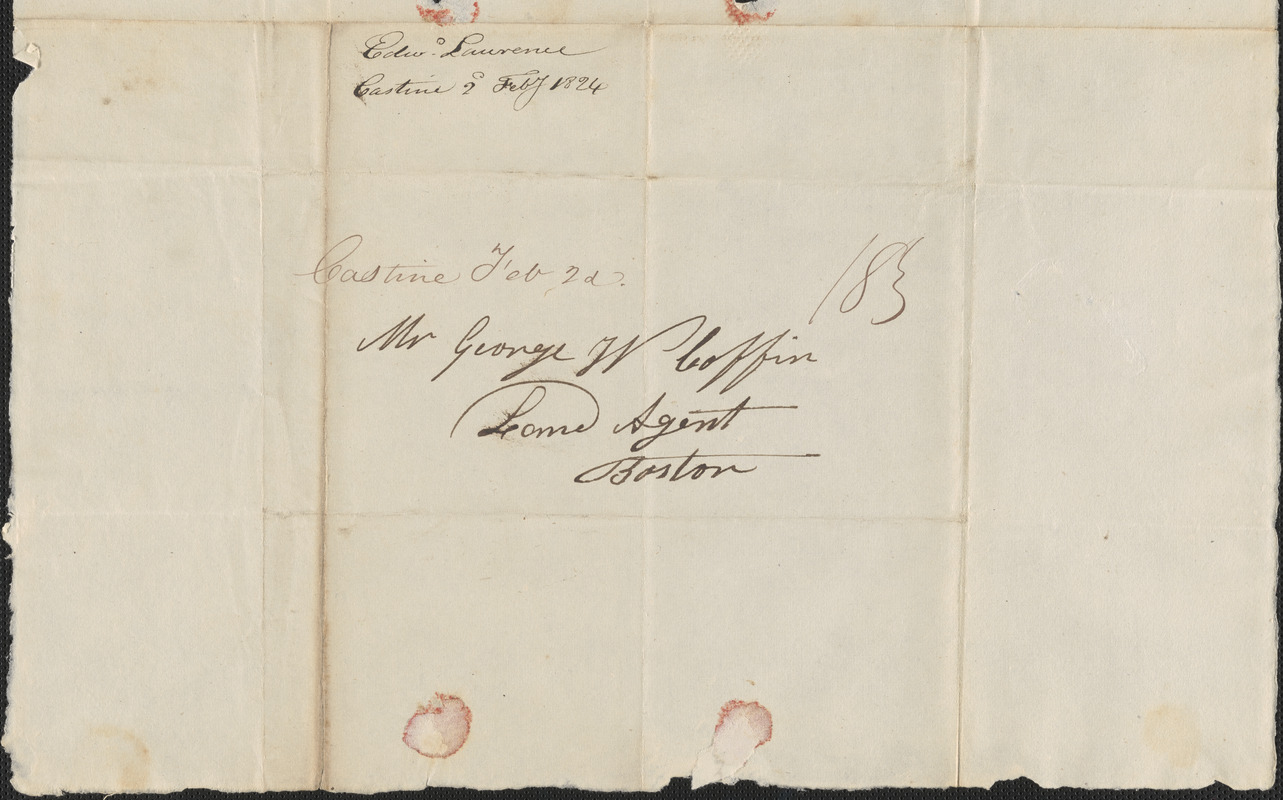 Edwd. Laurence
Castine 2d Feby 1824
Castine Feb 2d.
18 3/4
Mr George W Coffin
Land Agent
Boston